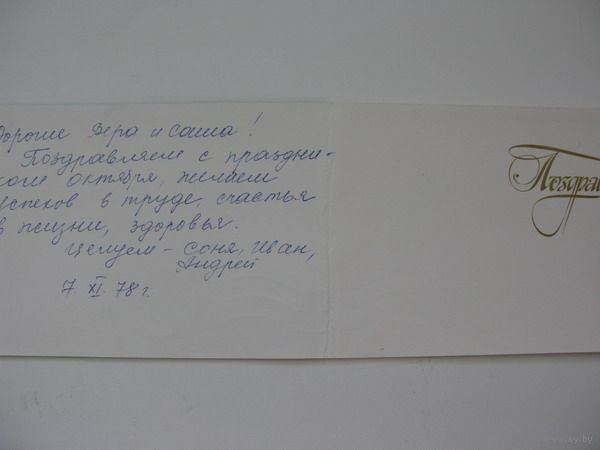 Дорогие Вера и Саша!
Поздравляем с праздни-
ком октября, желаем
успехов в труде, счастья
в жизни, здоровья.
Целуем - Соня, Иван,
Андрей
7. XI. 78 г.
Поздрав